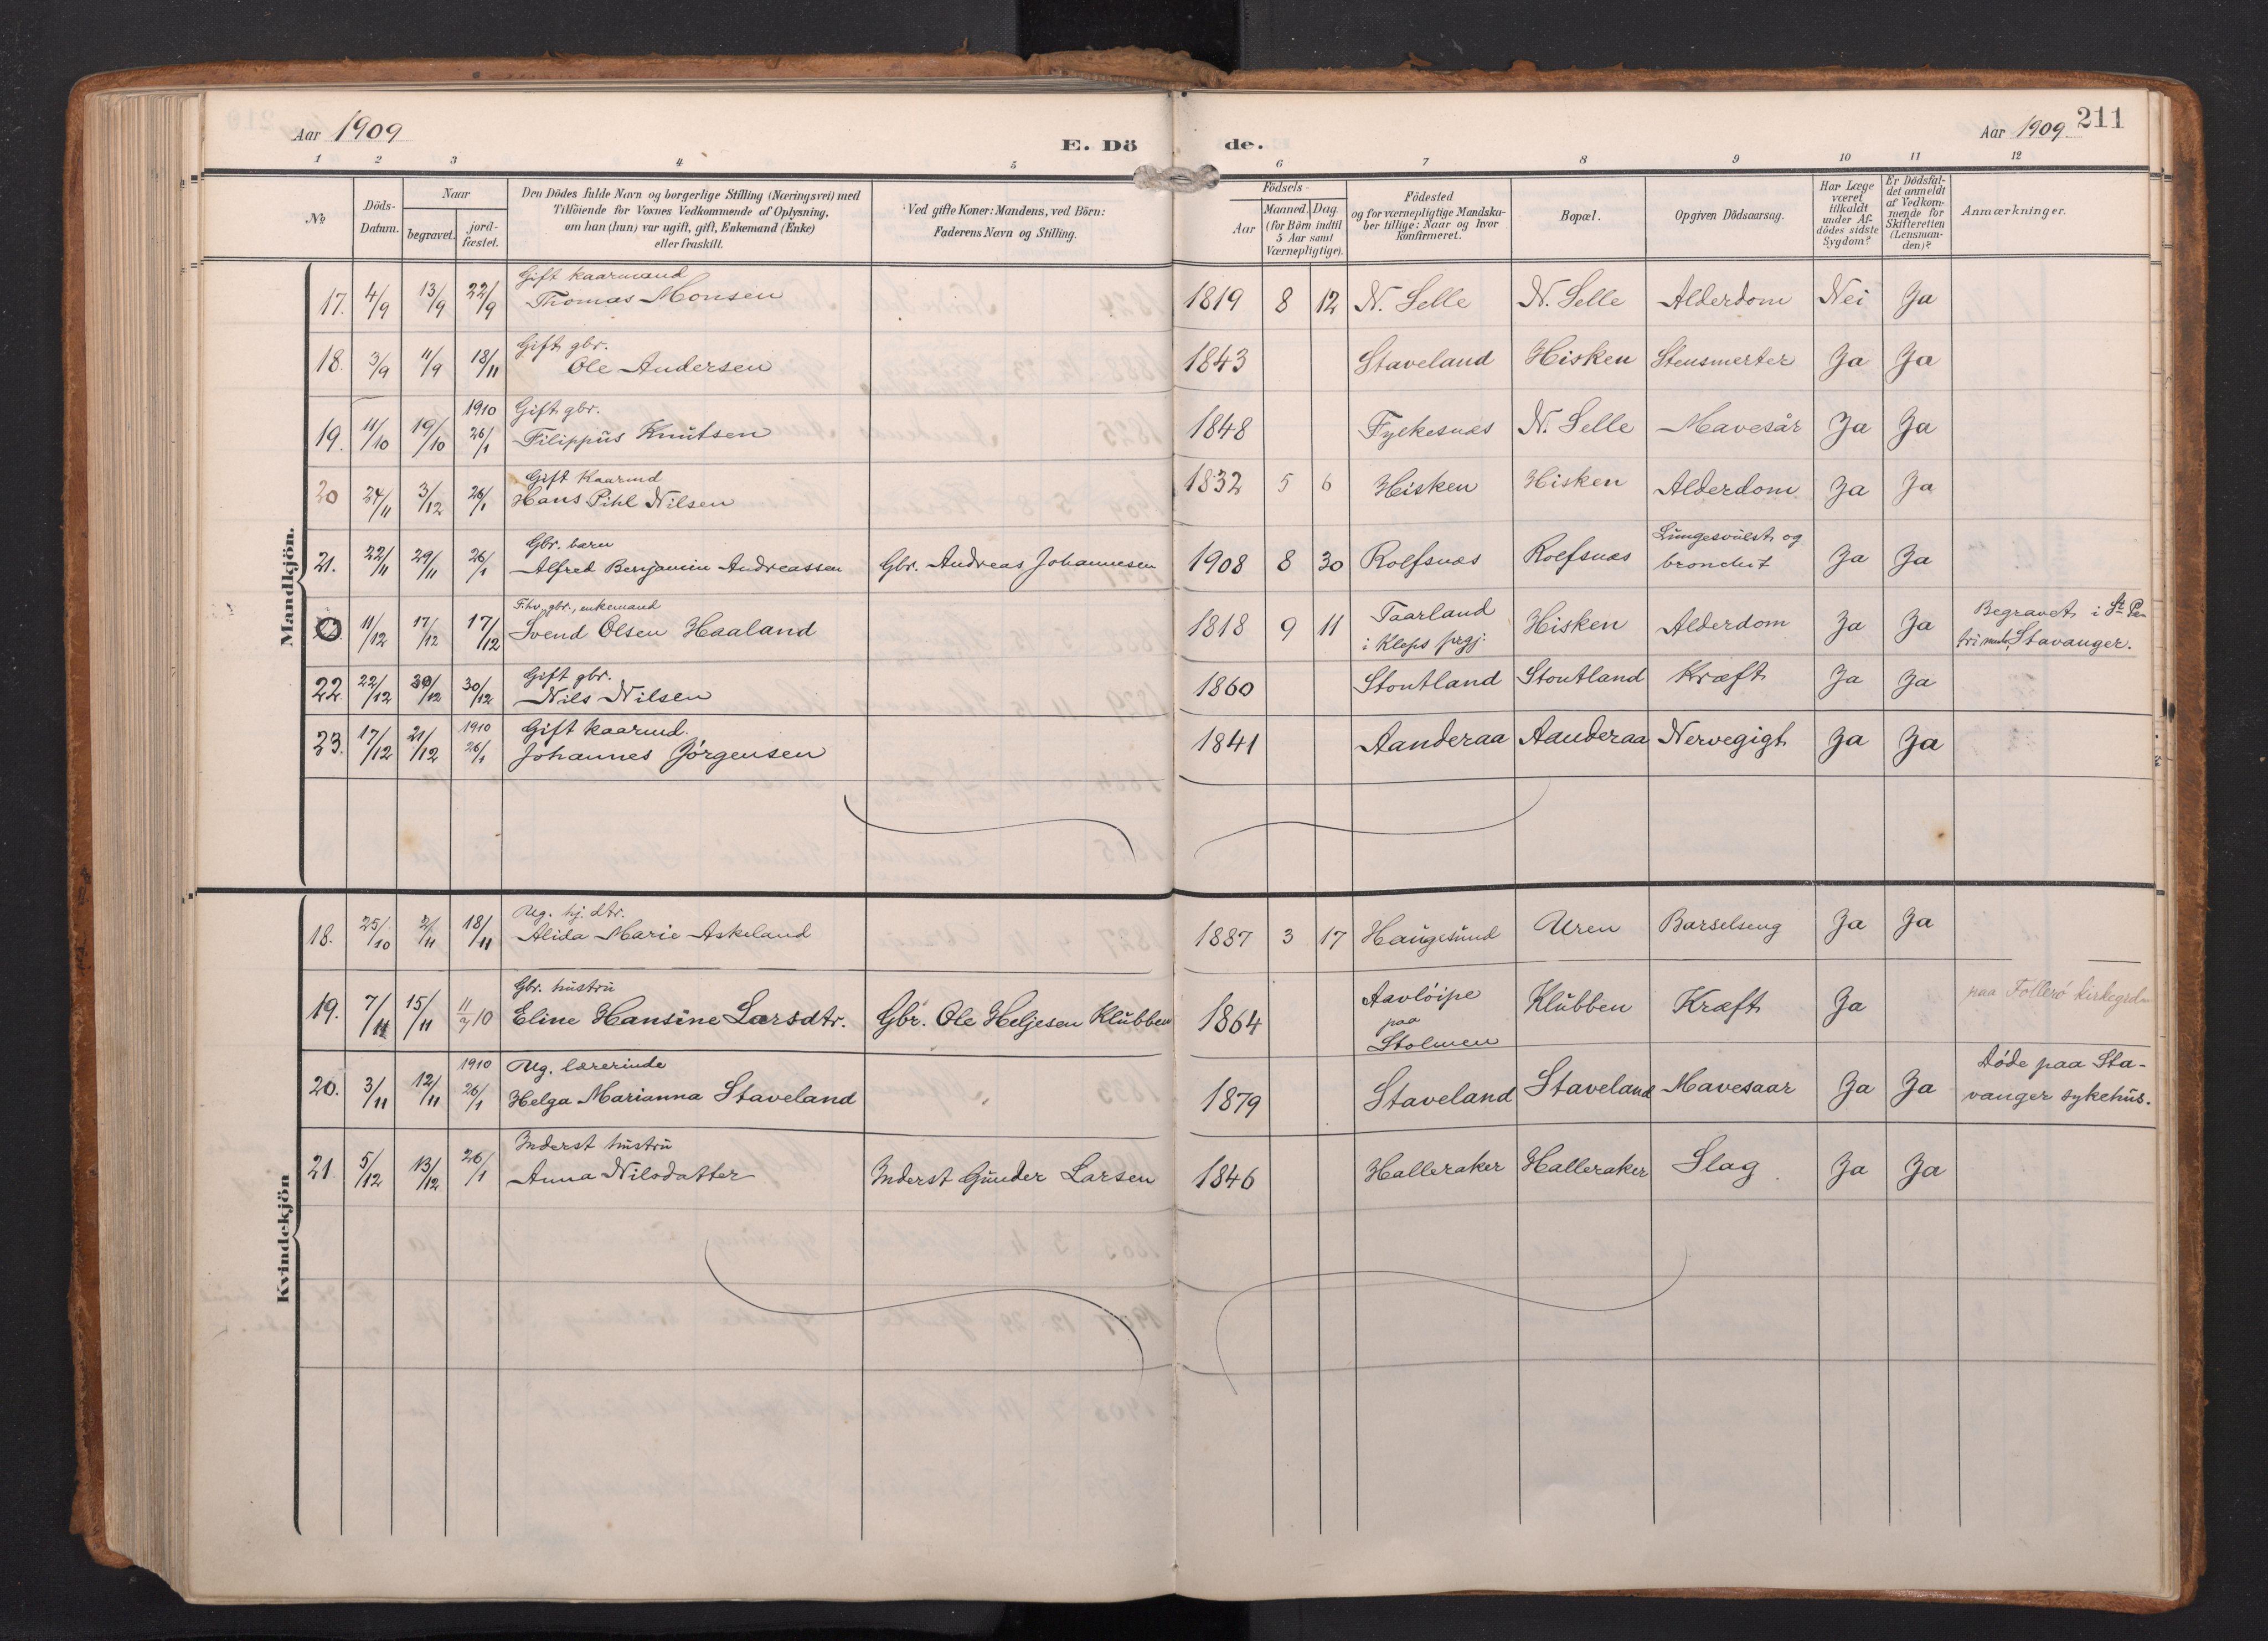 Aar 1909
E. Dö
de.
Aar 1909 211
1 2 3 4 5 6 7 8 9 10 11 12
№
Döds-
Datum.
Naar
begravet.
jord-
fæstet.
Den Dödes fulde Navn og borgerlige Stilling (Næringsvei) med
Tilföiende for Voxnes Vedkommende af Oplysning,
om han (hun) var ugift, gift, Enkemand (Enke)
eller fraskilt.
Ved gifte Koner: Mandens, ved Börn:
Faderens Navn og Stilling.
Födsels-
Aar
Maaned. Dag.
(for Börn indtil
5 Aar samt
Værnepligtige).
Födested
og for værnepligtige Mandska-
ber tillige: Naar og hvor
konfirmeret.
Bopæl.
Opgiven Dödsaarsag.
Har Læge
været
tilkaldt
under Af-
dödes sidste
Sygdom?
Er Dödsfal-
det anmeldt
af Vedkom-
mende for
Skifteretten
(Lensman-
den)?
Anmærkninger.
Mandkjön.
Gift kaarmand
17. 4/9 13/9 22/9 Thomas Monsen 1819 8 12 N. Selle N. Selle Alderdom Nei Ja
Gift gbr.
18. 3/9 11/9 18/11 Ole Andersen 1843 Staveland Hisken Stensmerter Ja Ja
1910 Gift gbr.
19. 11/10 19/10 26/1 Filippus Knutsen 1848 Fylkesnæs N. Selle Mavesår Ja Ja
Gift Kaarmd
20 24/11 3/12 26/1 Hans Pihl Nilsen 1832 5 6 Hisken Hisken Alderdom Ja Ja
Gbr. barn Lungesvulst og
21. 22/11 29/11 26/1 Alfred Benjamin Andreassen Gbr. Andreas Johannesen 1908 8 30 Rolfsnæs Rolfsnæs bronchit Ja Ja
F.hv. gbr., enkemand Taarland Begravet i St. Pe-
11/12 17/12 17/12 Svend Olsen Haaland 1818 9 11 i Kleps prgj. Hisken Alderdom Ja Ja Stavanger.
Gift gbr.
22. 22/12 30/12 30/12 Nils Nilsen 1860 Stoutland Stoutland Kræft Ja Ja
1910 Gift kaarmd.
23. 17/12 21/12 26/1 Johannes Jørgensen 1841 Aanderaa Aanderaa Nervegigt Ja Ja
Kvindekjön
Ug. hj. dtr.
18. 25/10 2/11 18/11 Alida Marie Askeland 1887 3 17 Haugesund Uren Barselseng Ja Ja
Gbr. hustru Aavløipe paa Follerø kirkegrd.
19. 7/11 15/11 11/7 10 Eline Hansine Larsdtr. Gbr. Ole Heljesen Klubben 1864 paa Klubben Kræft Ja
Stolmen
1910 Ug. lærerinde Døde paa Sta-
20. 3/11 12/11 26/1 Helga Marianna Staveland 1879 Staveland Staveland Mavesaar Ja Ja vanger sykehus.
Inderst hustru
21. 5/12 13/12 26/1 Anna Nilsdatter Inderst Gunder Larsen 1846 Halleraker Halleraker Slag Ja Ja